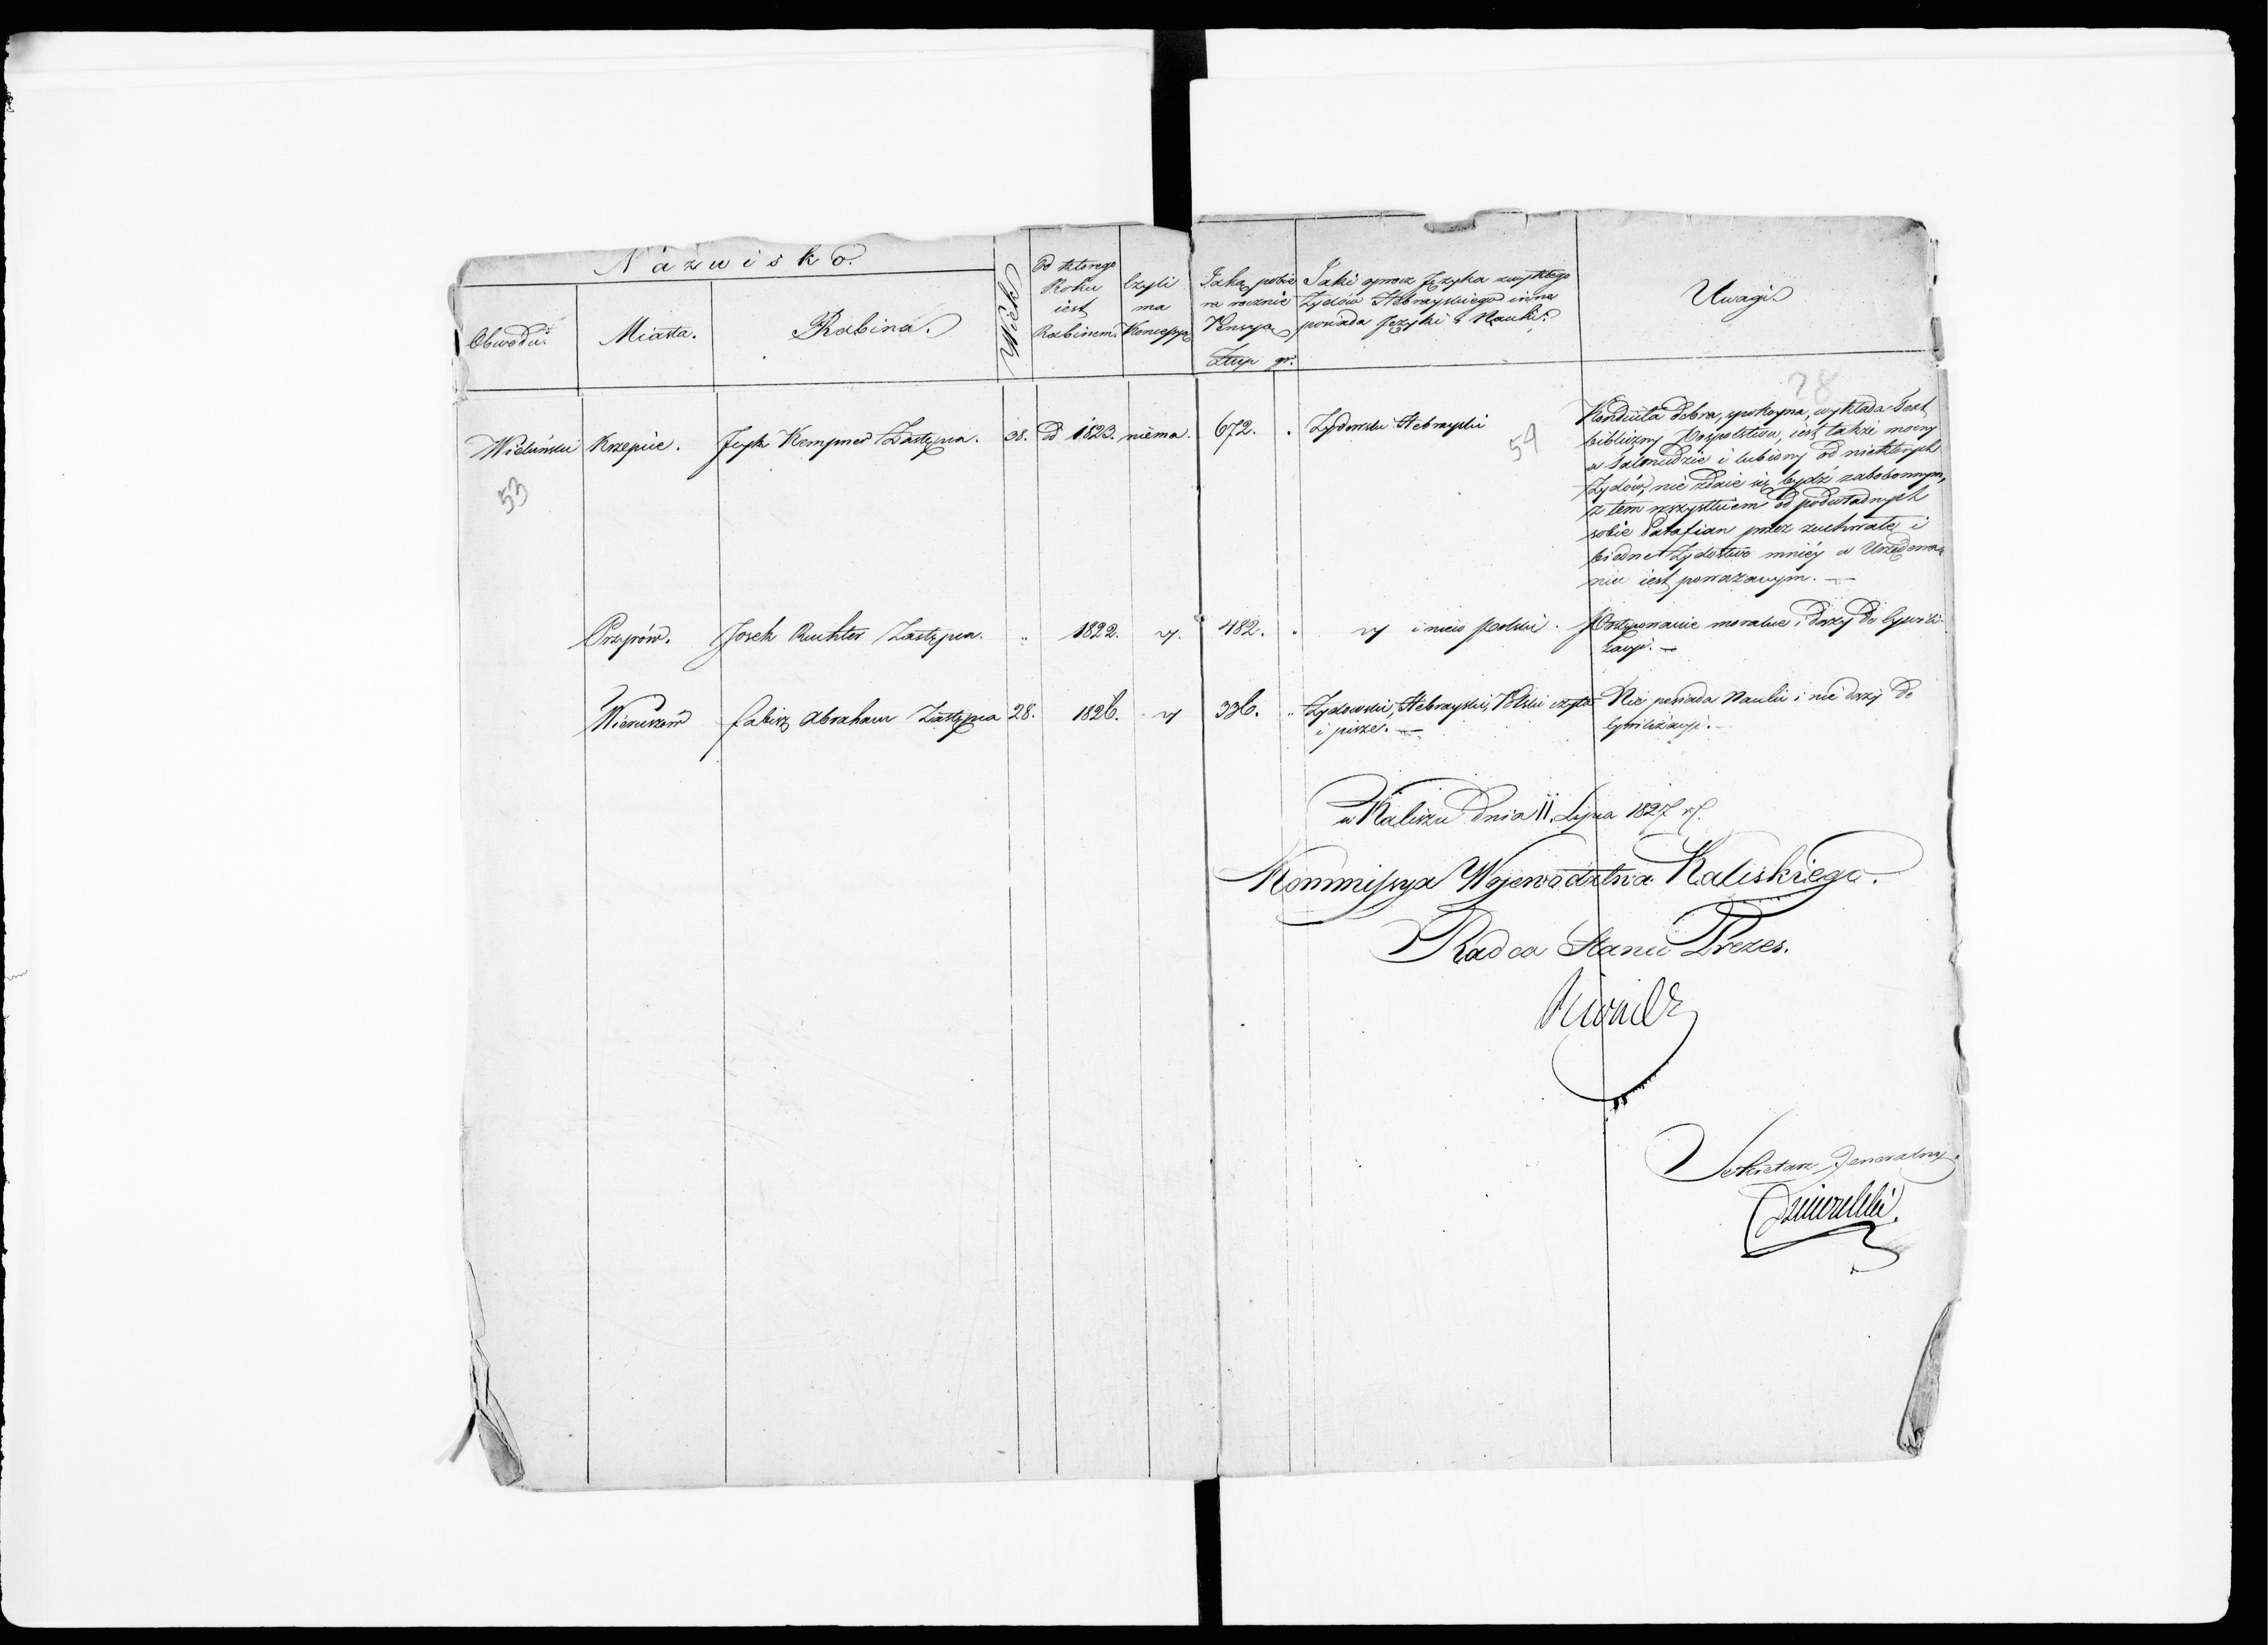 Nazwisko.
Obwodu.
Miasta.
Rabina.
Wiek
Od ktorego
Roku
iest
Rabinem.
Czyli
ma
Konsessyą
Jaką pobie
ra rocznie
Pensyą
Złłtp gr.
Jaki oprocz Języka zwykłego
Zydów Hebrayskiego inne
posiada Języki i Nauki.
Uwagi.
28
Wieluński Krzepice. Kempner Zastępca. 38. od 1823. niema. 672. . Zydowski Hebrayski
53
54
Konduita dobra, spokoyna, wykłada Text
bibliyny Pospolstwu, iest także mocny
w Talmudzie i lubiony od niektorych
Zydów, nie zdaie się bydź zabobonnym,
z tem wszystkiem od podwładnych
sobie Parafian przez zuchwałe i
biedne Zydostwo mniéy w Urzędowa-
niu iest powazanym. —
Josek Ruchter Zastępca. " 1822. " 482. . " i nieco Polski.
Postępowanie moralne i dązy do Cywili-
zacyi. —
Wieruszow Abraham Zastępca 28. 1826. " 336. " Zydowski, Hebrayski, Polski czyta
i pisze. —
Nie posiada Nauki i nie dązy do
Cywilizacyi. —
w Kaliszu dnia 11. Lipca 1827 r.
Kommissya Wojewodztwa Kaliskiego.
Radca Stanu Prezes.
Sekretarz Jeneralny.